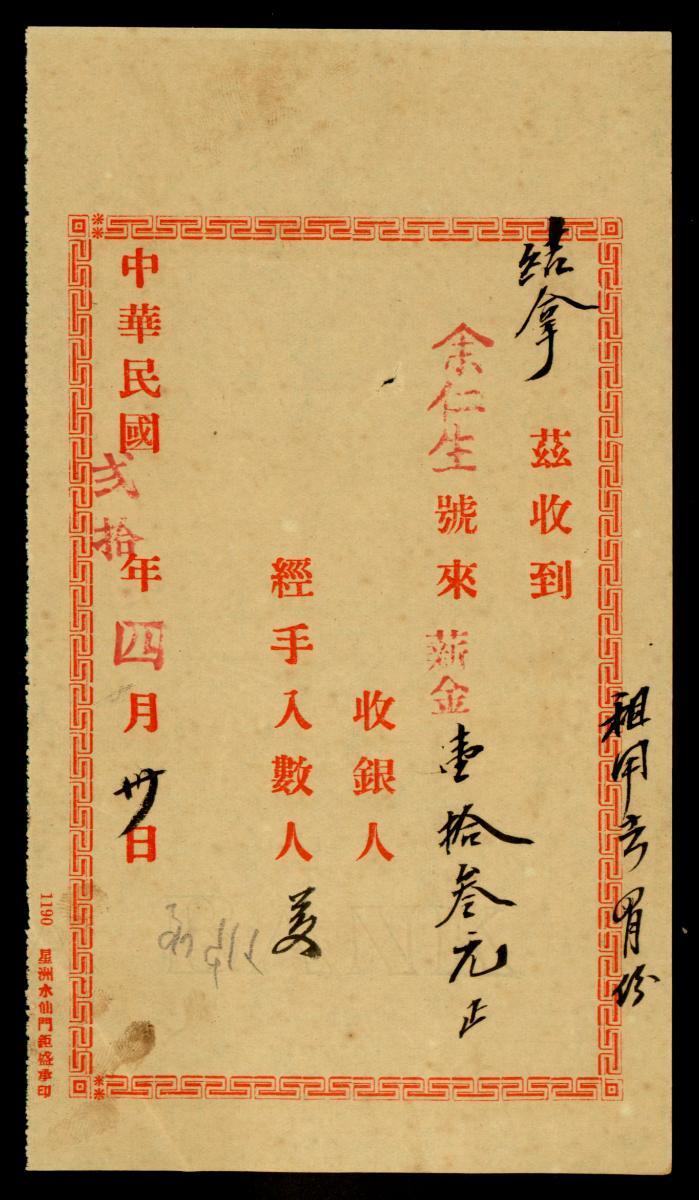 結拿 茲收到
余仁生號來薪金壹拾叁元正
收銀人
經手入數人
中華民國弍拾年四月卅日
1190 星洲水仙門鉅盛承印